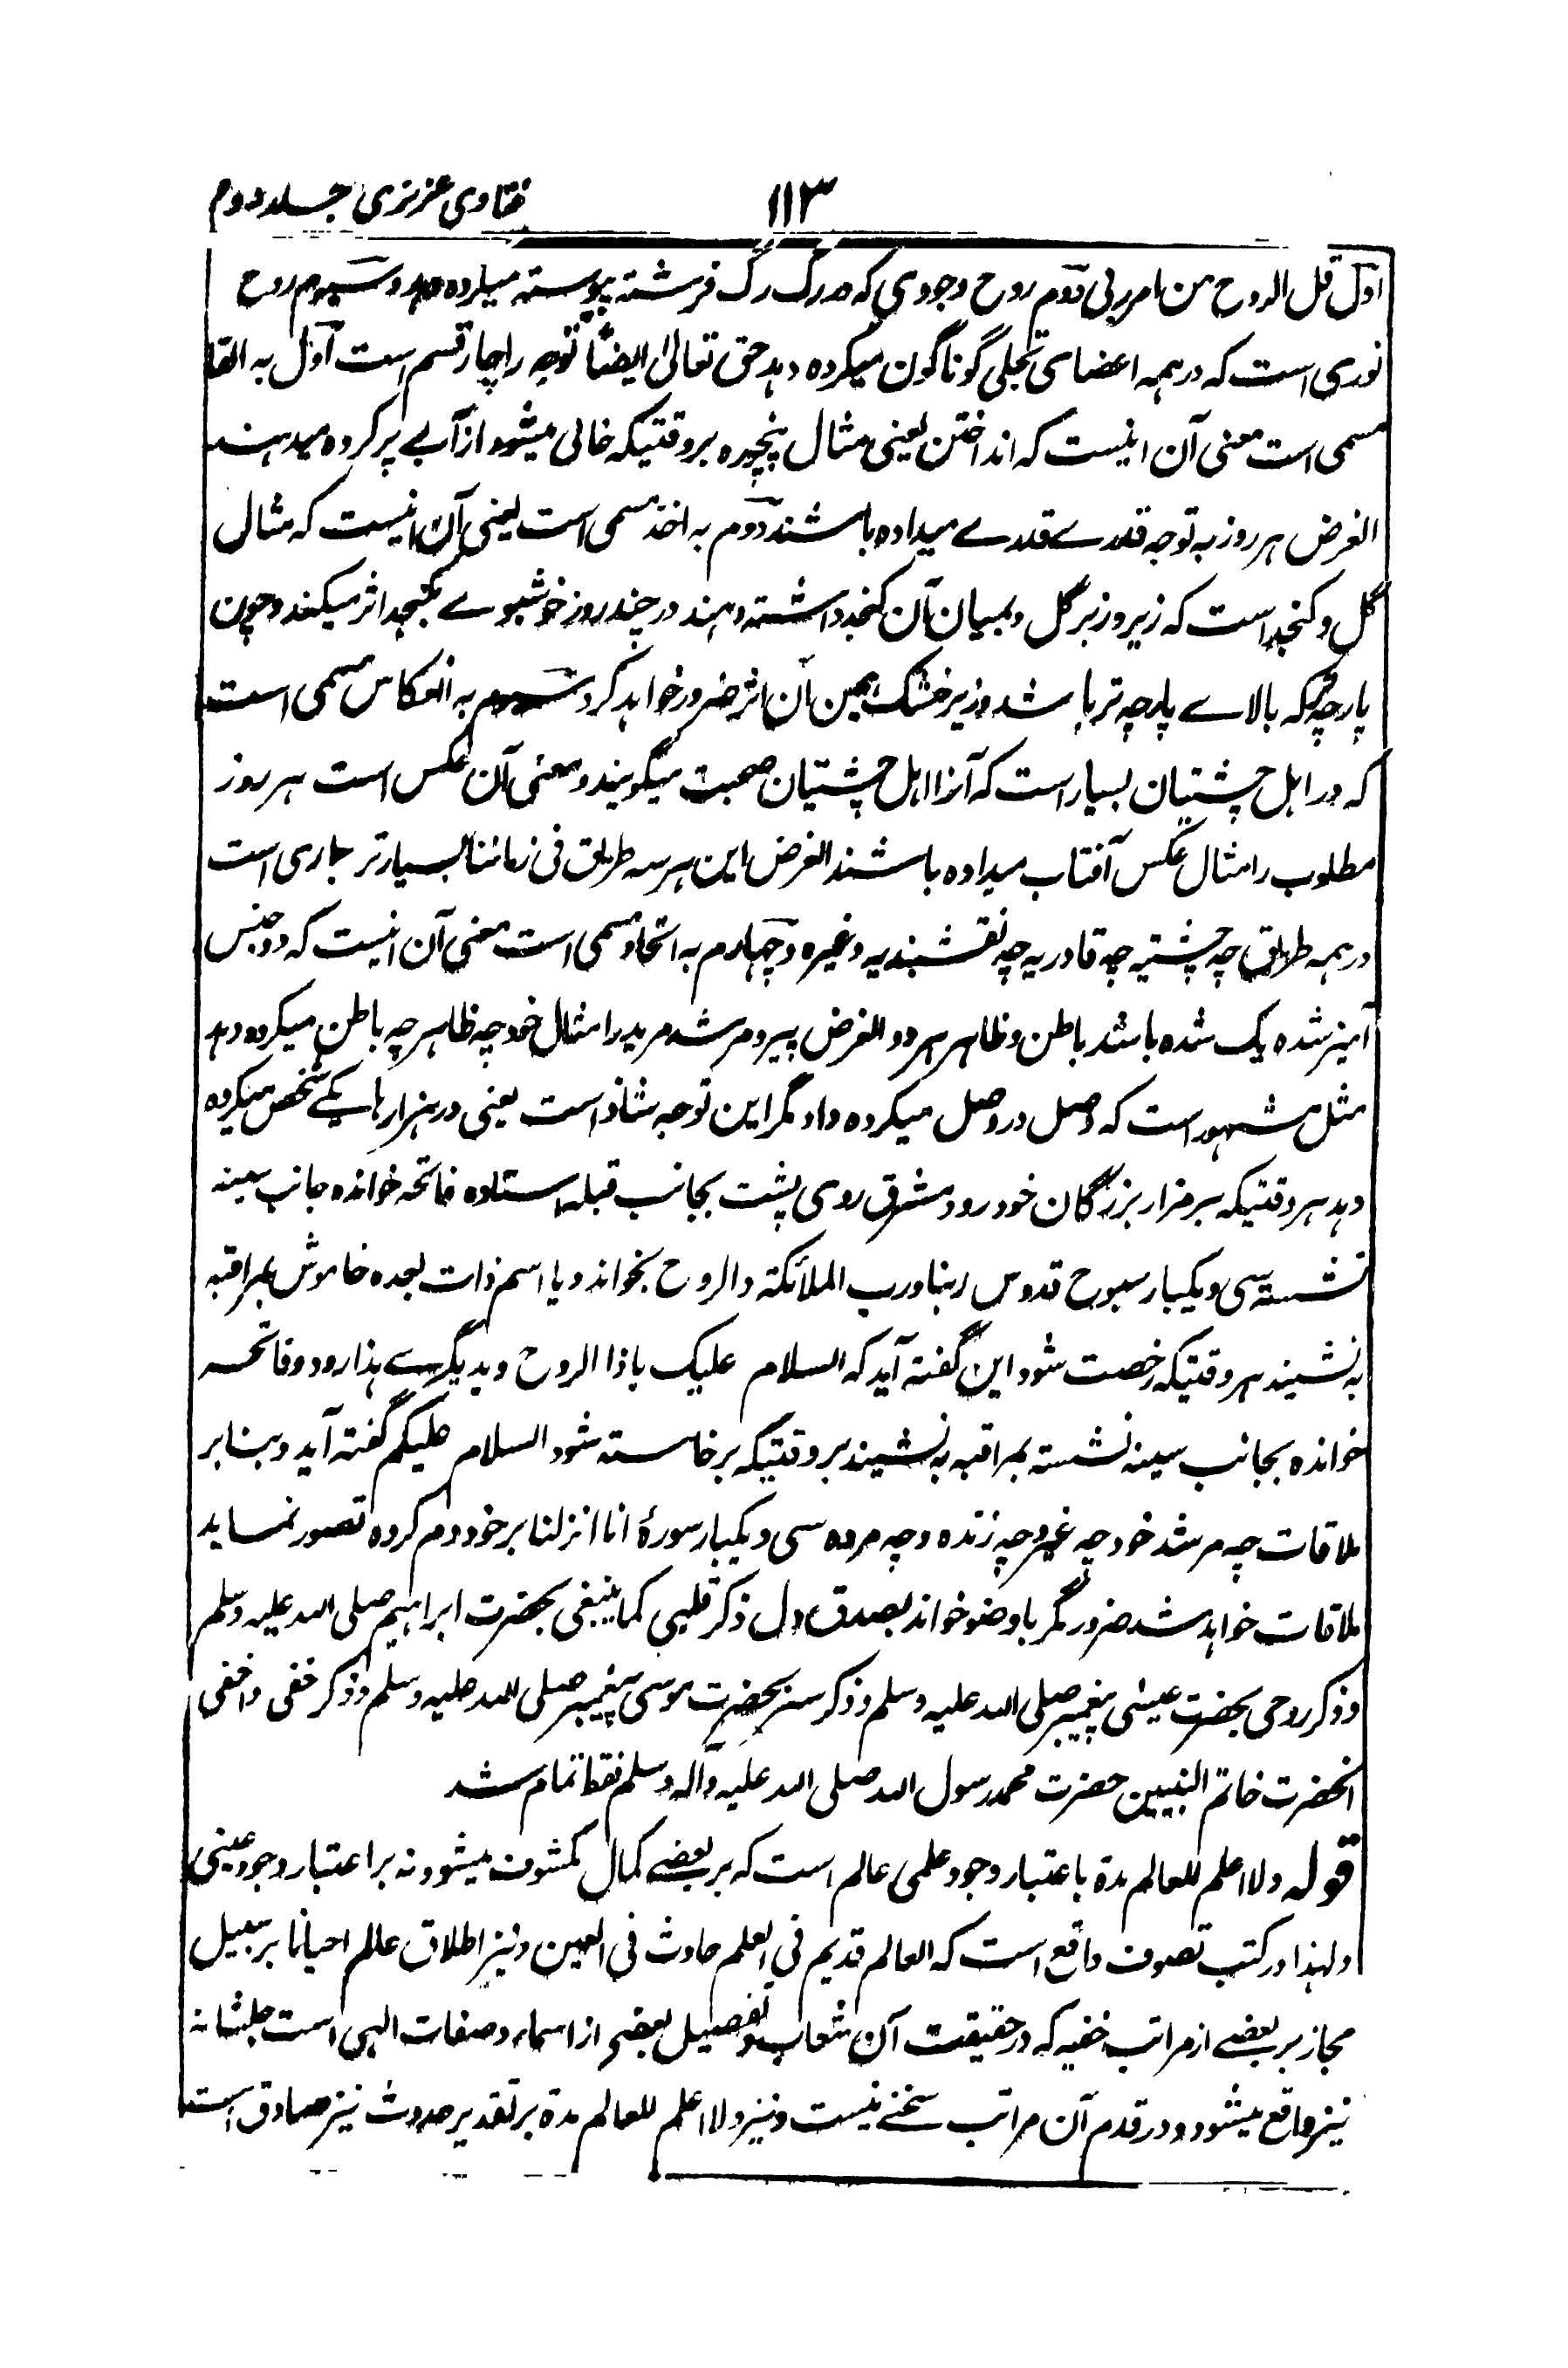 فتاوی عزیزی جلد دوم
۱۱۳
اول قل الروح من امر ربی دوم روح وجودی که در رگ رگ فرشته پیوسته میکرده دهد و سیوم روح
نوری است که در همه اعضای تجلی گوناگون میکرده دهد حق تعالیٰ ایضاً توجه را چار قسم است اول به القا
مسمی است معنی آن اینست که انداختن یعنی مثال پنچوره بروقتیکه خالی میشود از آبے پر کرده میدهند
الغرض هر روز به توجه قدرے قدرے میداده باشند دوم به اخذ مسمی است یعنی آن اینست که مثال
گل و کنجد است که زیر و زبر گل و بمیان آن کنجد داشته دهند در چند روز خوشبوے بکنجد اثر میکند و چون
پارچه که بالاے پارچه تر باشد و زیر خشک همین آن اثر ضرور خواهد کرد سیوم به انعکاس مسمی است
که در اهل چشتیان بسیار است که آنرا اهل چشتیان صحبت میگویند و معنی آن عکس است هر روز
مطلوب را مثال عکس آفتاب میداده باشند الغرض این هر سه طریق فی زماننا بسیار تر جاری است
در همه طریق چه چشتیه چه قادریه چه نقشبندیه وغیره و چهارم به اتحاد مسمی است معنی آن اینست که دو جنس
آمیز شده یک شده باشد باطن و ظاهر هر دو الغرض پیر و مرشد مرید را مثال خود چه ظاهر چه باطن میکرده دهد
مثل مشهور است که وصل در وصل میکرده داد مگر این توجه شاذ است یعنی در هزارها یکے شخص میکرده
دهد هر وقتیکه بر مزار بزرگان خود رود مشرق روی پشت بجانب قبله استاده فاتحه خوانده جانب سینه
نشسته سی و یکبار سبوح قدوس ربنا ورب الملائکة والروح بخواند و یا اسم ذات بعده خاموش بمراقبه
به نشیند هر وقتیکه رخصت شود این گفته آید که السلام علیک یا ذا الروح و بدیگرے هذا رود و فاتحه
خوانده بجانب سینه نشسته بمراقبه به نشیند بروقتیکه برخاسته شود السلام علیکم گفته آید و بنابر
ملاقات چه مرشد خود چه غیر و چه زنده و چه مرده سی و یکبار سورهٔ انا انزلنا بر خود دم کرده تصور نماید
ملاقات خواهد شد ضرور مگر با وضو خواند بصدق دل ذکر قلبی کما ینبغی بحضرت ابراهیم صلی الله علیه وسلم
و ذکر روحی بحضرت عیسٰی پیغمبر صلی الله علیه وسلم و ذکر سر بحضرت موسی پیغمبر صلی الله علیه وسلم و ذکر خفی و اخفی
آنحضرت خاتم النبیین حضرت محمد رسول الله صلی الله علیه وآله وسلم فقط تمام شد
قوله ولا اعلم للعالم مدة باعتبار وجود علمی عالم است که بر بعضے کمال مکشوف میشود نه بر اعتبار وجود عینی
ولهذا در کتب تصوف واقع است که العالم قدیم فی العلم حادث فی العین و نیز اطلاق عالم احیانا بر سبیل
مجاز بر بعضے از مراتب خفیه که در حقیقت آن شعاب و تفصیل بعضے از اسماء و صفات الهی است جلشانه
نیز واقع میشود و در قدم آن مراتب سخنے نیست و نیز ولا اعلم للعالم مدة بر تقدیر حدوث نیز صادق است